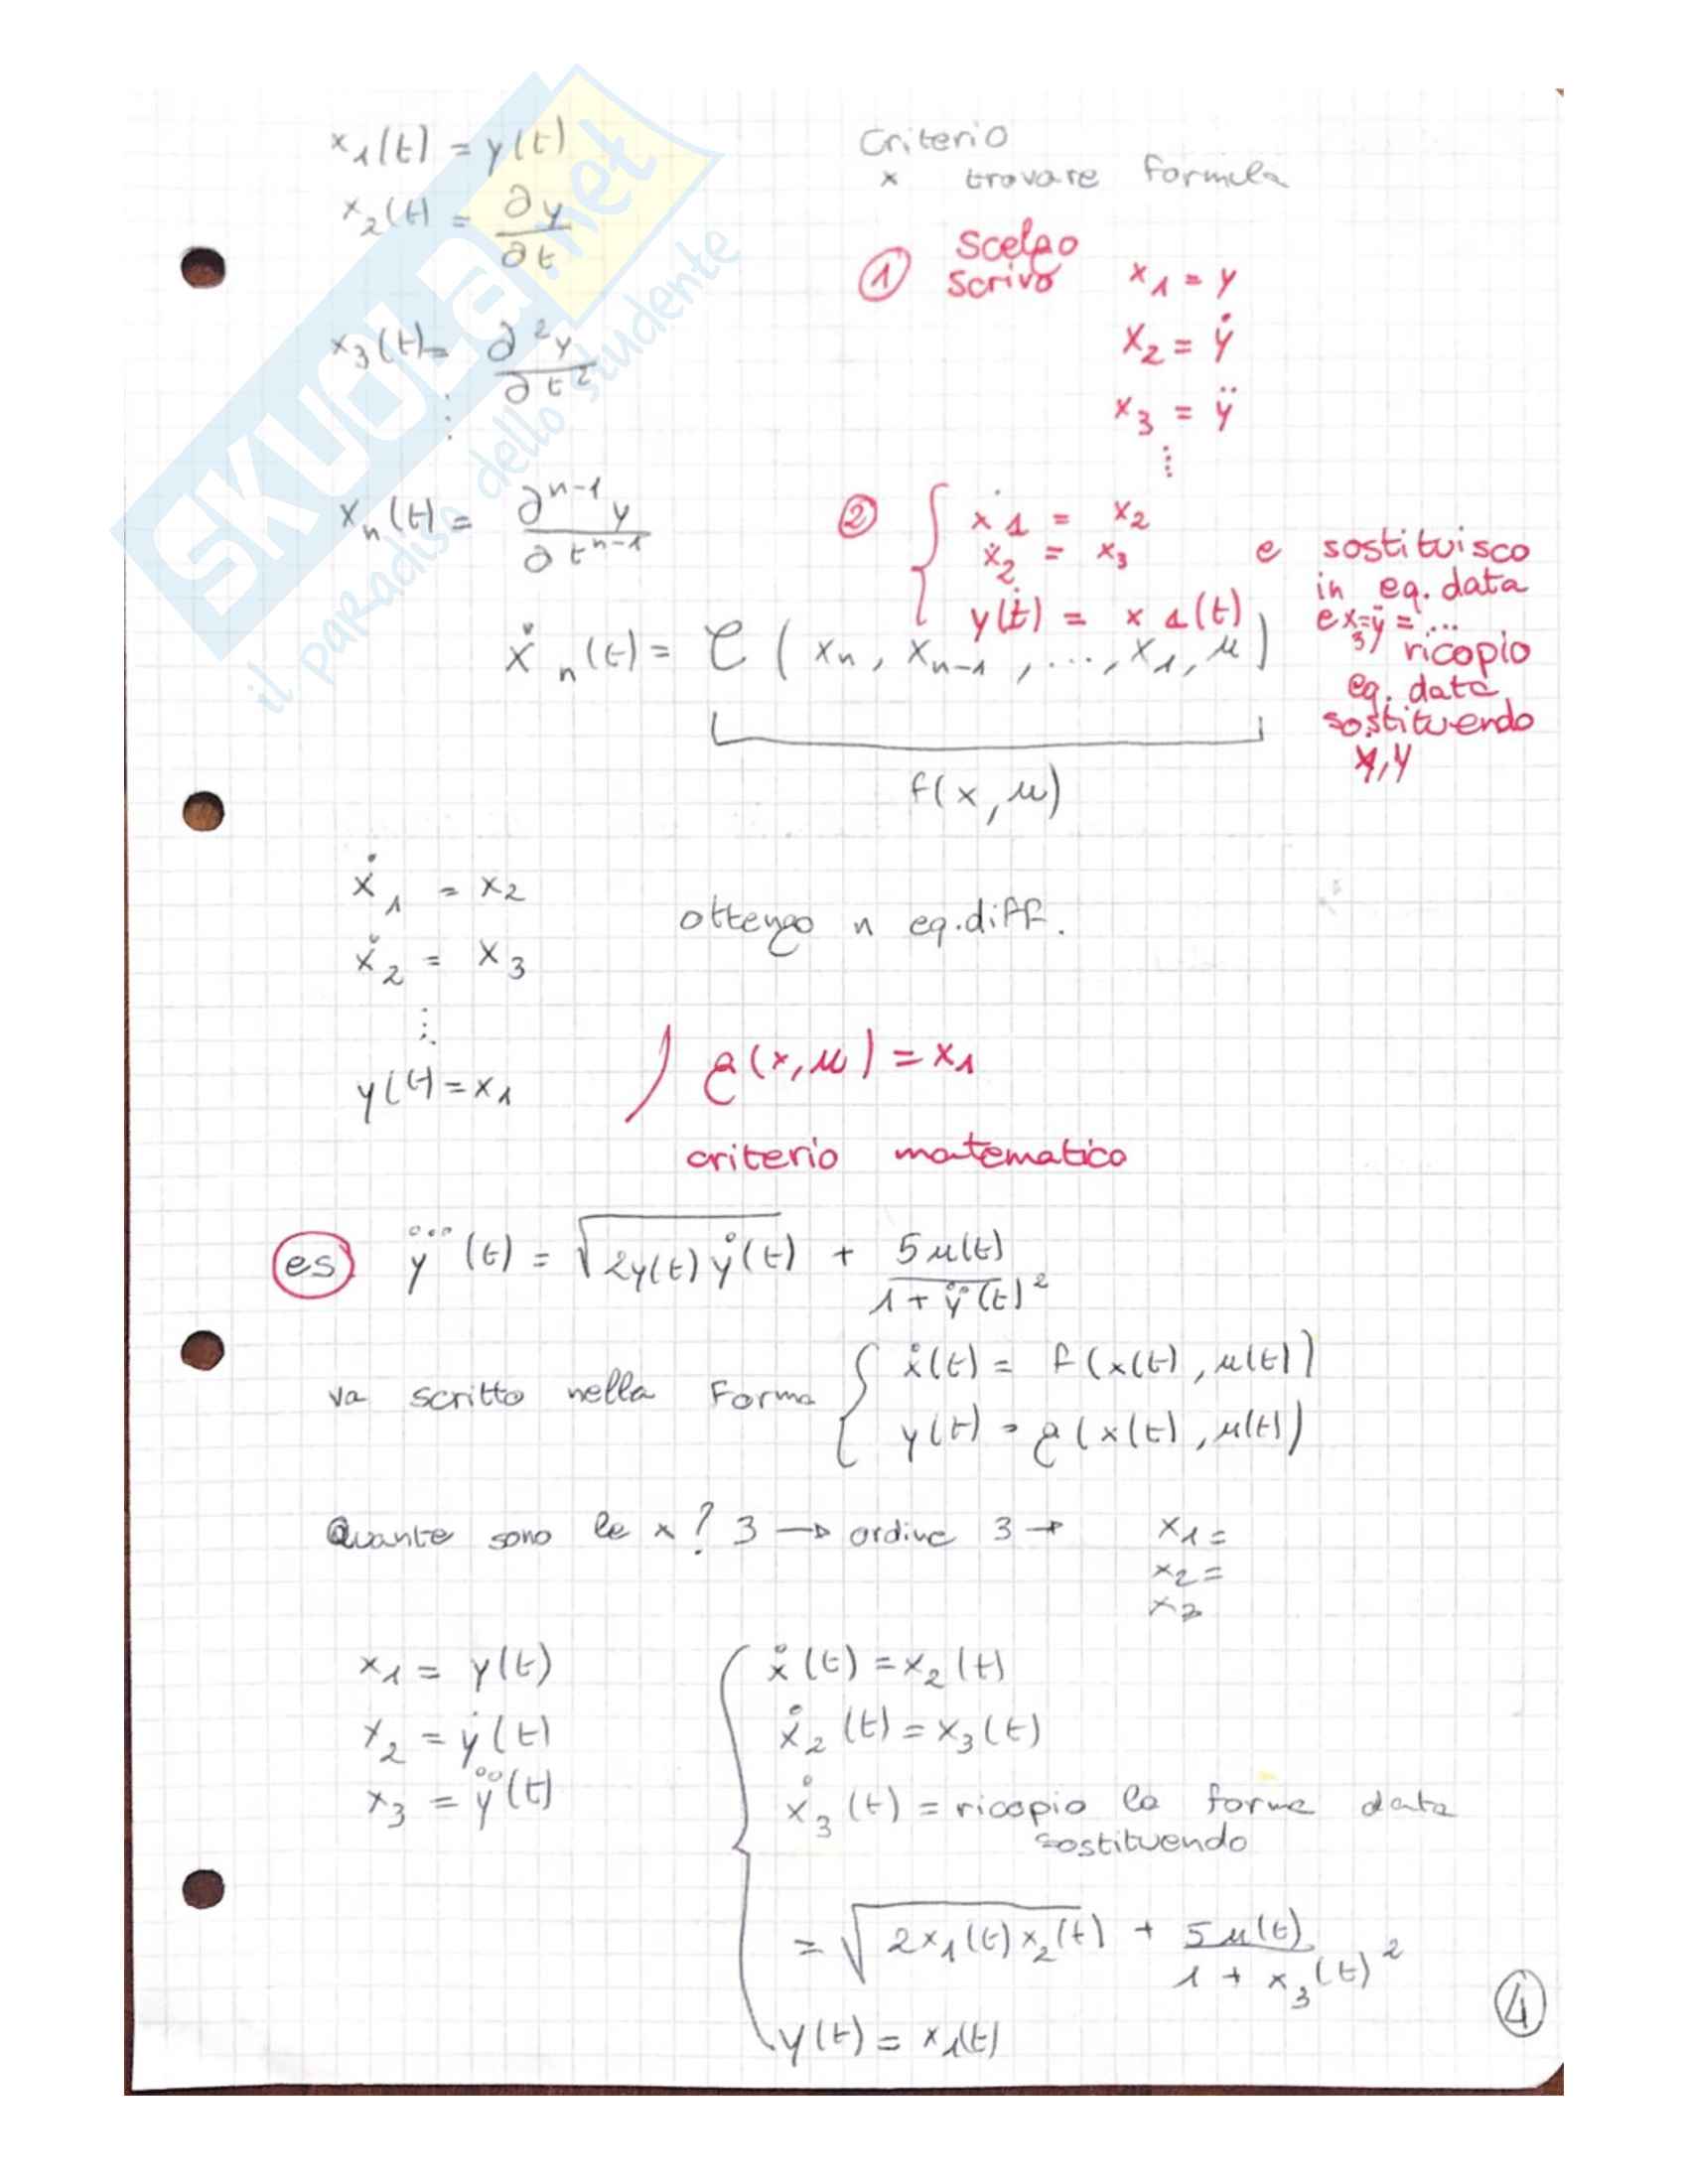 x₁(t) = y(t)
x₂(t) = ∂y/∂t
x₃(t) = ∂²y/∂t²
⋮
xₙ(t) = ∂ⁿ⁻¹y/∂tⁿ⁻¹
Criterio
x trovare formula
① Scelgo
scrivo x₁ = y
x₂ = ẏ
x₃ = ÿ
⋮
② { ẋ₁ = x₂
ẋ₂ = x₃
y(t) = x₁(t)
e sostituisco
in eq. data
ricopio
eq. data
sostituendo
ẋₙ(t) = (xₙ, xₙ₋₁, ..., x₁, u)
f(x, u)
ẋ₁ = x₂
ẋ₂ = x₃
⋮
y(t) = x₁
ottengo n eq. diff.
g(x, u) = x₁
criterio matematico
es) y⃛(t) = √(2y(t)ẏ(t)) + 5u(t)/(1 + ÿ(t)²)
va scritto nella forma { ẋ(t) = f(x(t), u(t))
y(t) = g(x(t), u(t))
Quante sono le x? 3 → ordine 3 → x₁ =
x₂ =
x₃
x₁ = y(t)
x₂ = ẏ(t)
x₃ = ÿ(t)
{ ẋ(t) = x₂(t)
ẋ₂(t) = x₃(t)
ẋ₃(t) = ricopio la forma data
sostituendo
= √(2x₁(t)x₂(t)) + 5u(t)/(1 + x₃(t)²)
y(t) = x₁(t)
④
SKUOLA.net
il paradiso dello studente